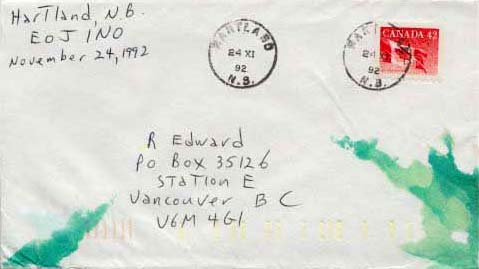 Hartland, N.B.
E0J 1N0
November 24, 1992
HARTLAND
24 XI
92
N.B.
HARTLAND
24 XI
92
N.B.
CANADA 42
R Edward
PO BOX 35126
STATION E
Vancouver B C
V6M 4G1